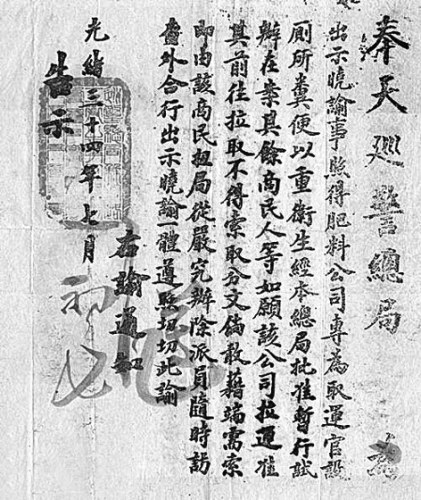 奉天巡警總局 為
出示曉諭事照得肥料公司專為取運官設
厠所糞便以重衛生經本總局批准暫行試
辦在案其餘商民人等如願該公司拉運准
其前往拉取不得索取分文倘敢藉端需索
即由該商民扭局從嚴究辦除派員隨時訪
查外合行出示曉諭一體遵照切切此諭
右諭通知
光緒三十四年七月初
告示